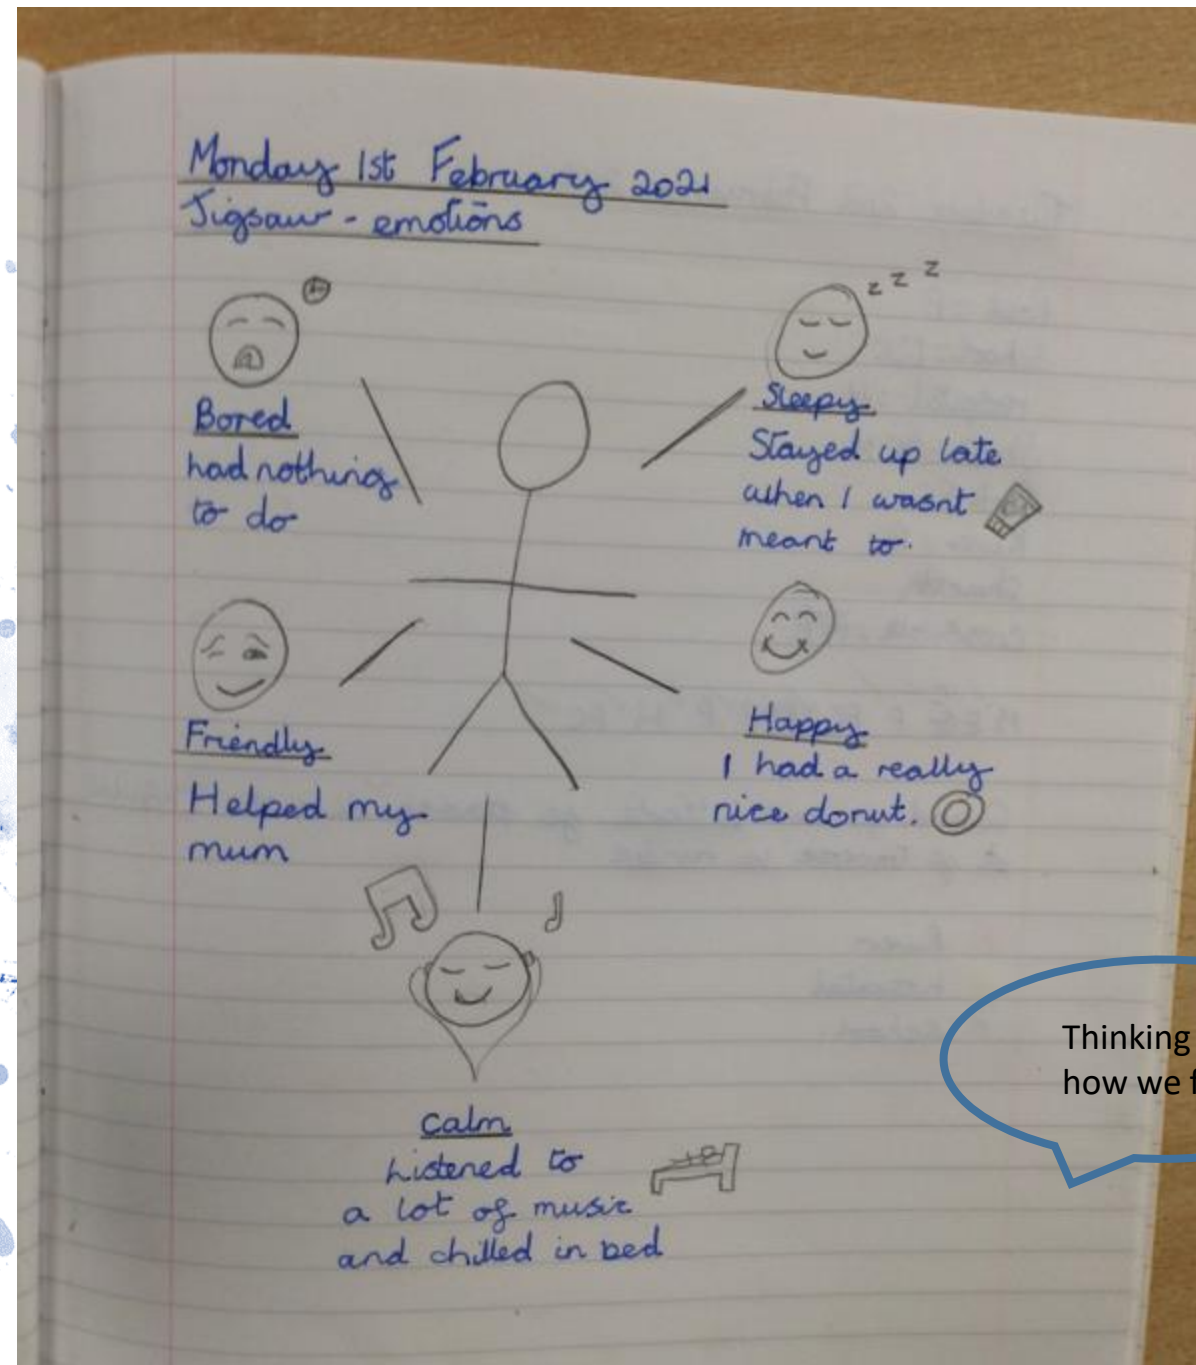 Monday 1st February 2021
Jigsaw - emotions
Bored
had nothing
to do
z z z
Sleepy
Stayed up late
when I wasnt
meant to.
Friendly
Helped my
mum
Happy
I had a really
nice donut.
Calm
Listened to
a lot of music
and chilled in bed
Thinking
how we